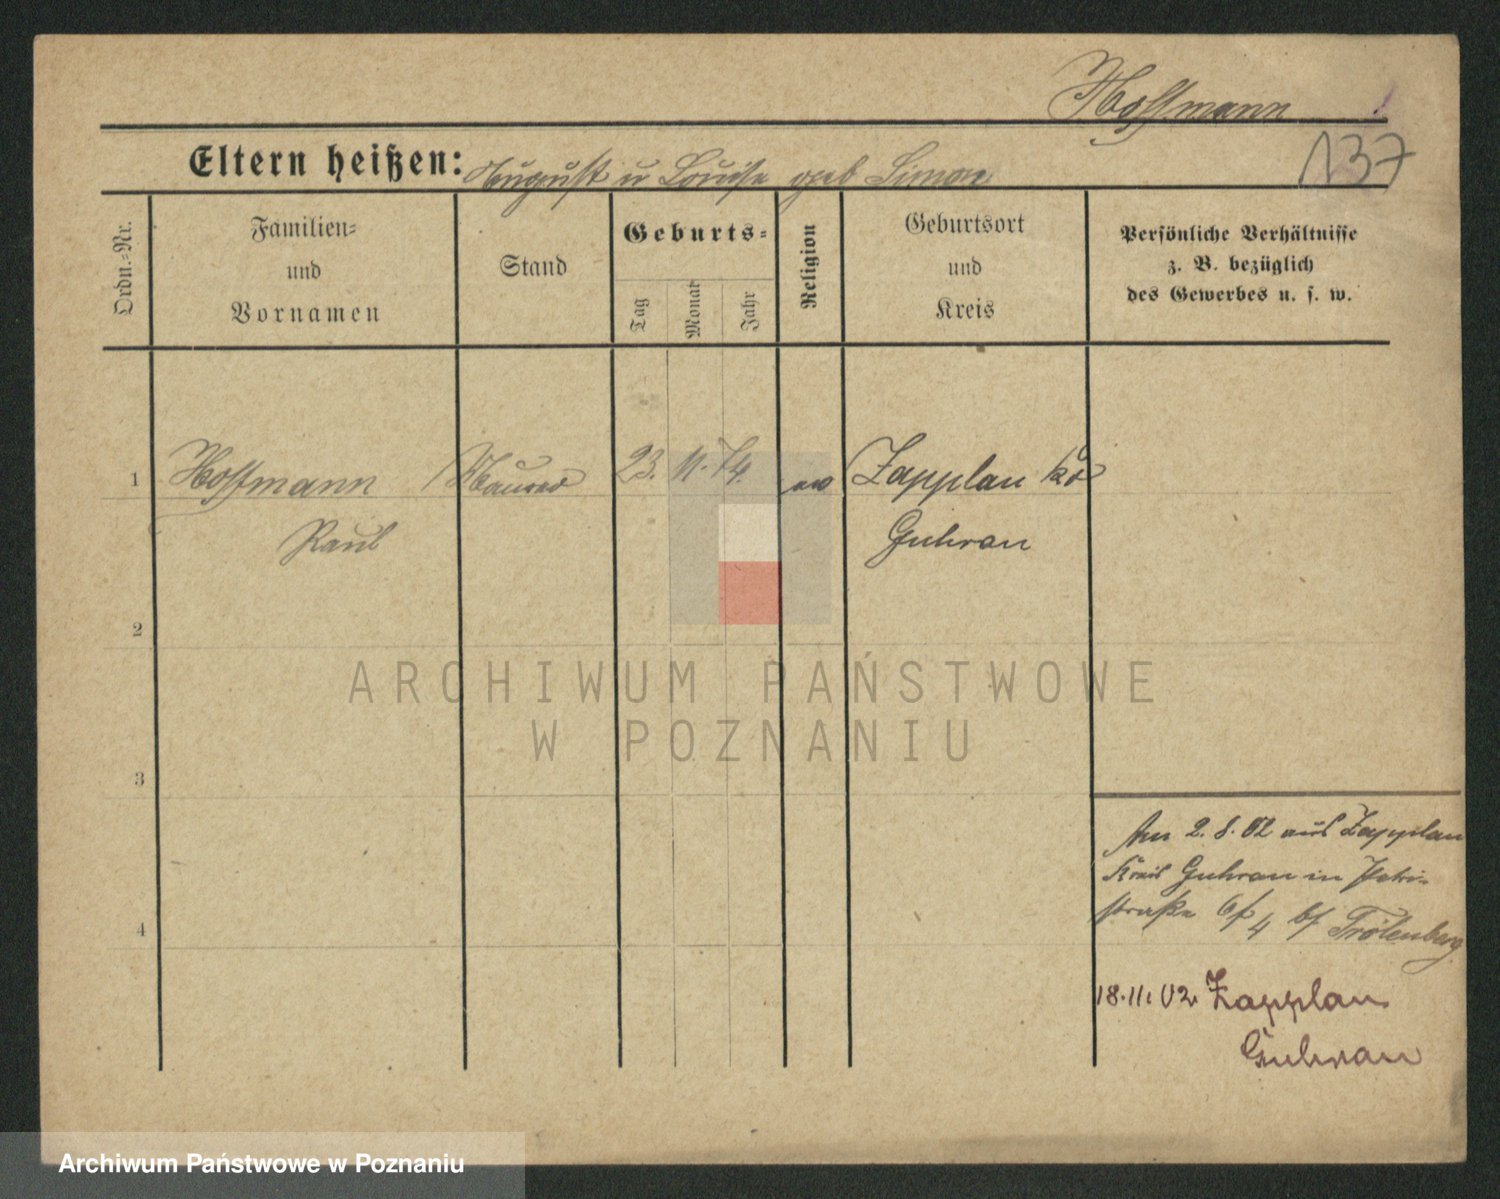 Hoffmann
137
Eltern heißen: August u Louise geb Simon
Ordn.=Nr.
Familien=
und
Vornamen
Stand
Geburts=
Tag
Monat
Jahr
Religion
Geburtsort
und
Kreis
Persönliche Verhältnisse
z. B. bezüglich
des Gewerbes u. s. w.
1 Hoffmann Maurer 23. 11. 74. ev Zapplau Kr
Paul Guhrau
2
3
4
ARCHIWUM PAŃSTWOWE
W POZNANIU
Am 2. 8. 02 aus Zapplau
Kreis Guhrau in Petri-
straße 4 bf
18.11.02. Zapplau
Guhrau
Archiwum Państwowe w Poznaniu